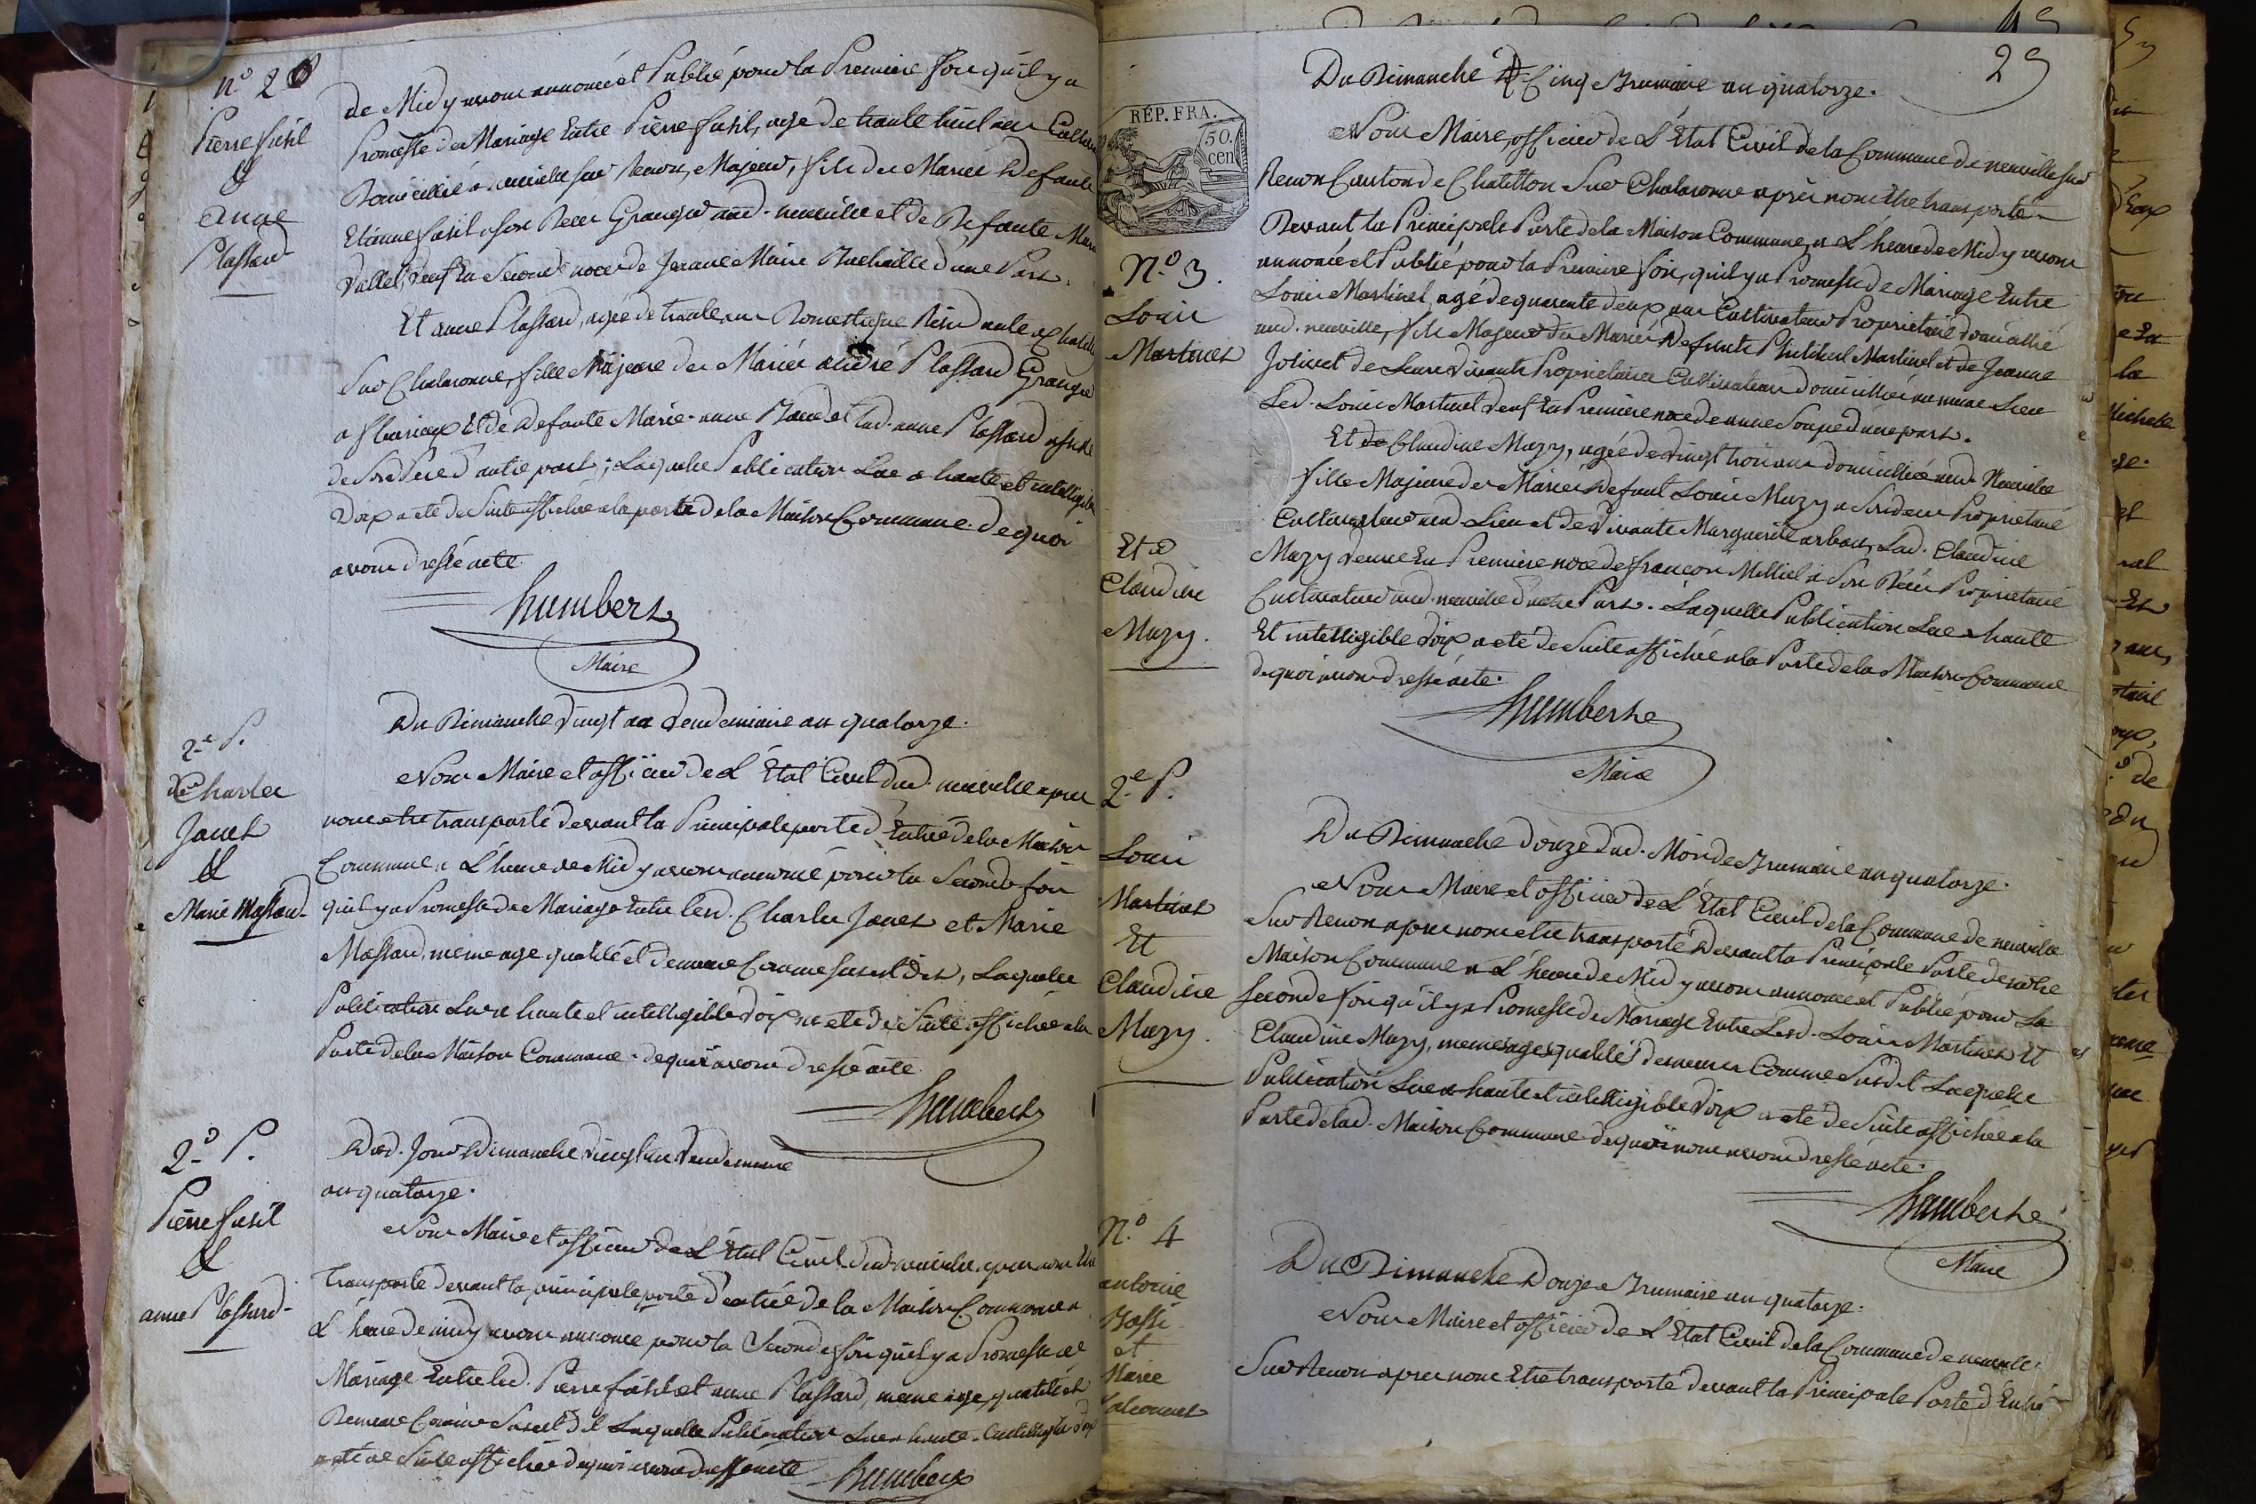 n.o 2
Pierre fusil
&
Anne
Plassard
de Midy avons annoncé et Publié pour la Premiere fois qu'il y a
Promesse de Mariage Entre Pierre fusil, agé de trante huit ans
Domicillié a neuville sur Renon, Majeur, fils de Mariés Defunts
Etienne fusil a son Deces Granger aud. neuville et de Defunte Marie
Vallet, veuf En Seconde noces de Jeanne Marie d'une Part.
Et anne Plassard, agée de trante ans Domestique Residante a Chatillon
Sur Chalaronne, fille Majeure de Mariés andré Plassard Granger
a fleurieux Et de Defunte Marie-anne lad. anne Plassard assistée
de Son Pere d'autre part; Laquelle Publication Lue a haute et intelligible
Voix a eté de Suite affichée a la porte de la Maison Commune. de quoi
avons dressé acte.
humbert
Maire
2.e P.
de Charles
Janet
&
Marie Massard
Du Dimanche vingt un Vendemiaire an quatorze.
Nous Maire et officier de L'Etat Civil dud. neuville apres
nous etre transporté devant la Principale porte d'Entrée de la Maison
Commune a L'heure de Midy avons annoncé pour la Seconde fois
qu'il y a Promesse de Mariage Entre lesd. Charles Janet et Marie
Massard, meme age qualité et demeure Comme Susest dit, Laquelle
Publication Lue a haute et intelligible Voix a eté de Suite affichée a la
Porte de la Maison Commune. de quoi avons dressé acte
humbert
2.e P.
Pierre fusil
&
anne Plassard
Dud. Jour Dimanche vingt un Vendemiaire
an quatorze.
Nous Maire et officier de L'Etat Civil dud. neuville, apres nous Etre
transporté devant la principale porte d'entrée de la Maison Commune a
L'heure de midy avons annoncé pour la Seconde fois qu'il y a Promesse de
Mariage Entre led. Pierre fusil et anne Plassard, meme age, qualité et
Demeure Comme Susest dit Laquelle Publication Lue a haute & intelligible voix
a eté de Suite affichée de quoi avons dressé acte humbert
29
REP. FRA.
50.
cen
Du Dimanche Cinq Brumaire an quatorze.
N.o 3.
Louis
Martinet
Et
Claudine
Mazy.
Nous Maire, officier de L'Etat Civil de la Commune de neuville sur
Renon Canton de Chatillon Sur Chalaronne après nous être transporté
Devant la Principale Porte de la Maison Commune, a L'heure de Midy avons
annoncé et Publié pour la Premiere fois, qu'il y a Promesse de Mariage Entre
Louis Martinet, agé de quarente deux ans Cultivateur Propriétaire domicillié
aud. neuville, fils Majeur de Mariés Defunt Philibert Martinet et de Jeanne
Jolivet de Leurs vivants Proprietaires Cultivateurs domicilliés au meme Lieu
Led. Louis Martinet veuf En Premiere noce de anne Soupe d'une part.
Et de Claudine Mazy, agée de vingt trois ans domicilliée aud. Neuville
fille Majeure de Mariés Defunt Louis Mazy a Son deces Proprietaire
Cultivateur aud. Lieu et de Vivante Marguerite arban, Lad. Claudine
Mazy veuve En Premiere noce de françois Milliet a Son Décès Proprietaire
Cultivateur aud. neuville d'autre Part. Laquelle Publication Lue a haute
Et intelligible Voix a eté de Suite affichée a la Porte de la Maison Commune
de quoi avons dressé acte.
humbert
Maire
2.e P.
Louis
Martinet
Et
Claudine
Mazy.
Du Dimanche douze dud. Mois de Brumaire an quatorze.
Nous Maire et officier de L'Etat Civil de la Commune de neuville
Sur Renon apres nous etre transporté Devant la Principale Porte de notre
Maison Commune a L'heure de Midy avons annoncé et Publié pour La
Seconde fois qu'il y a Promesse de Mariage Entre Lesd. Louis Martinet Et
Claudine Mazy, memes ages qualités demeures Comme Susdit Laquelle
Publication Lue a haute et intelligible Voix a eté de Suite affichée a la
Porte de lad. Maison Commune de quoi nous avons dressé acte.
humbert
Maire
N.o 4
antoine
et
Marie
Du Dimanche Douze Brumaire an quatorze.
Nous Maire et officier de L'Etat Civil de la Commune de neuville
Sur Renon apres nous Etre transporté devant la Principale Porte d'Entrée